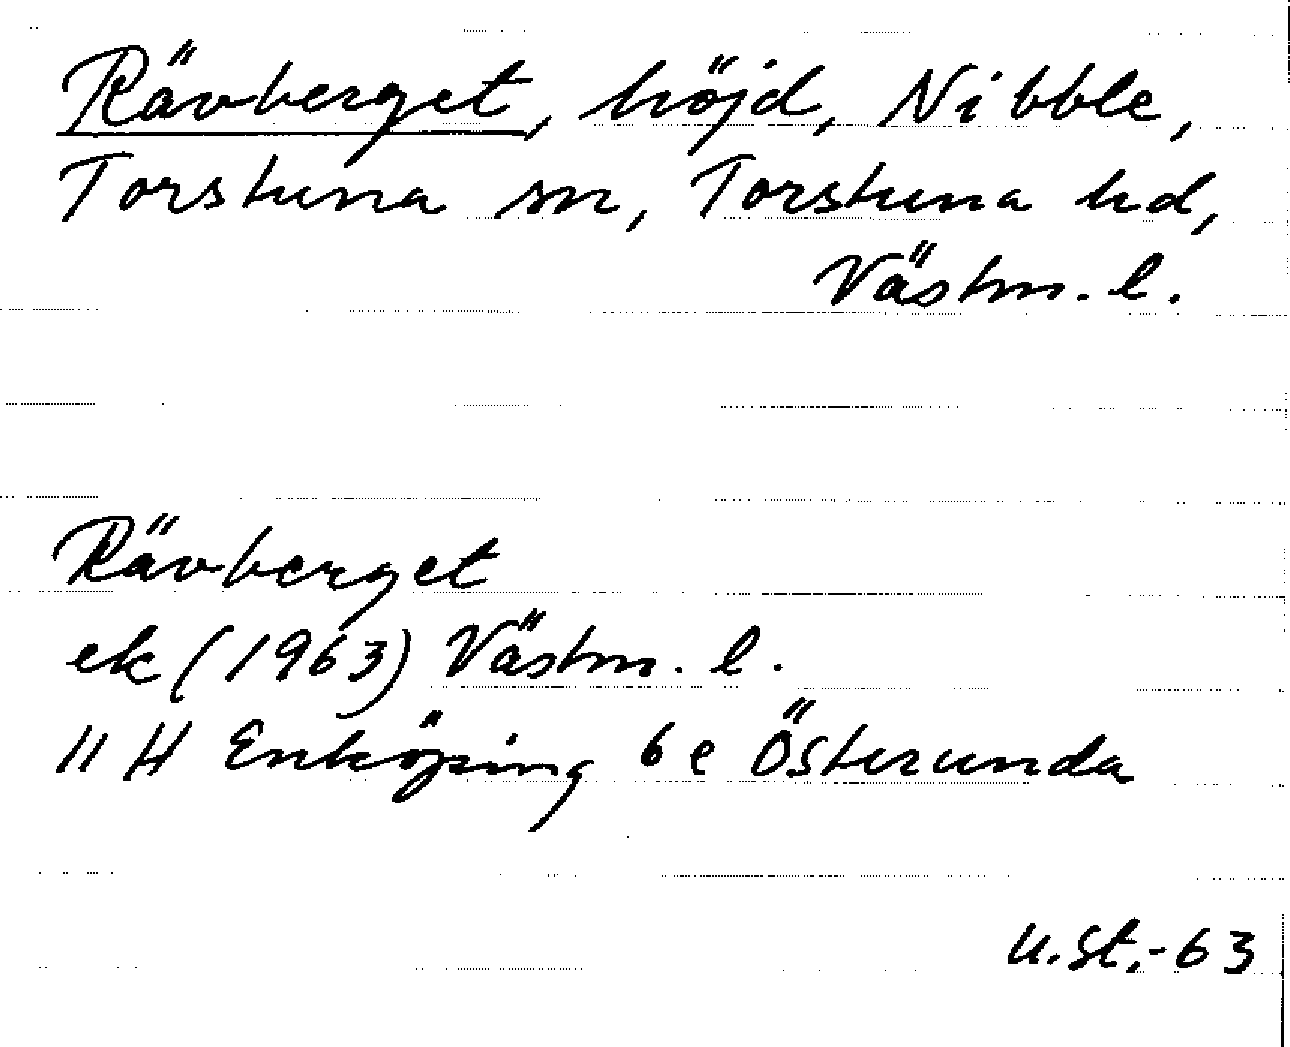 Rävberget, höjd, Nibble,
Torstuna sn, Torstuna hd,
Västm. l.
Rävberget
ek (1963) Västm. l.
11 H Enköping 6 e Österunda
U.St.-63